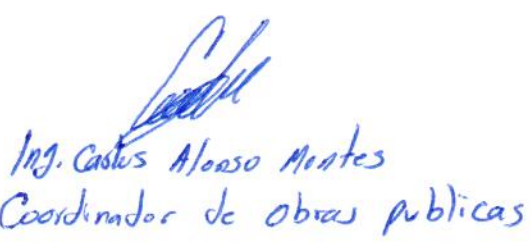 Ing. Carlos Alonso Montes
Coordinador de obras publicas